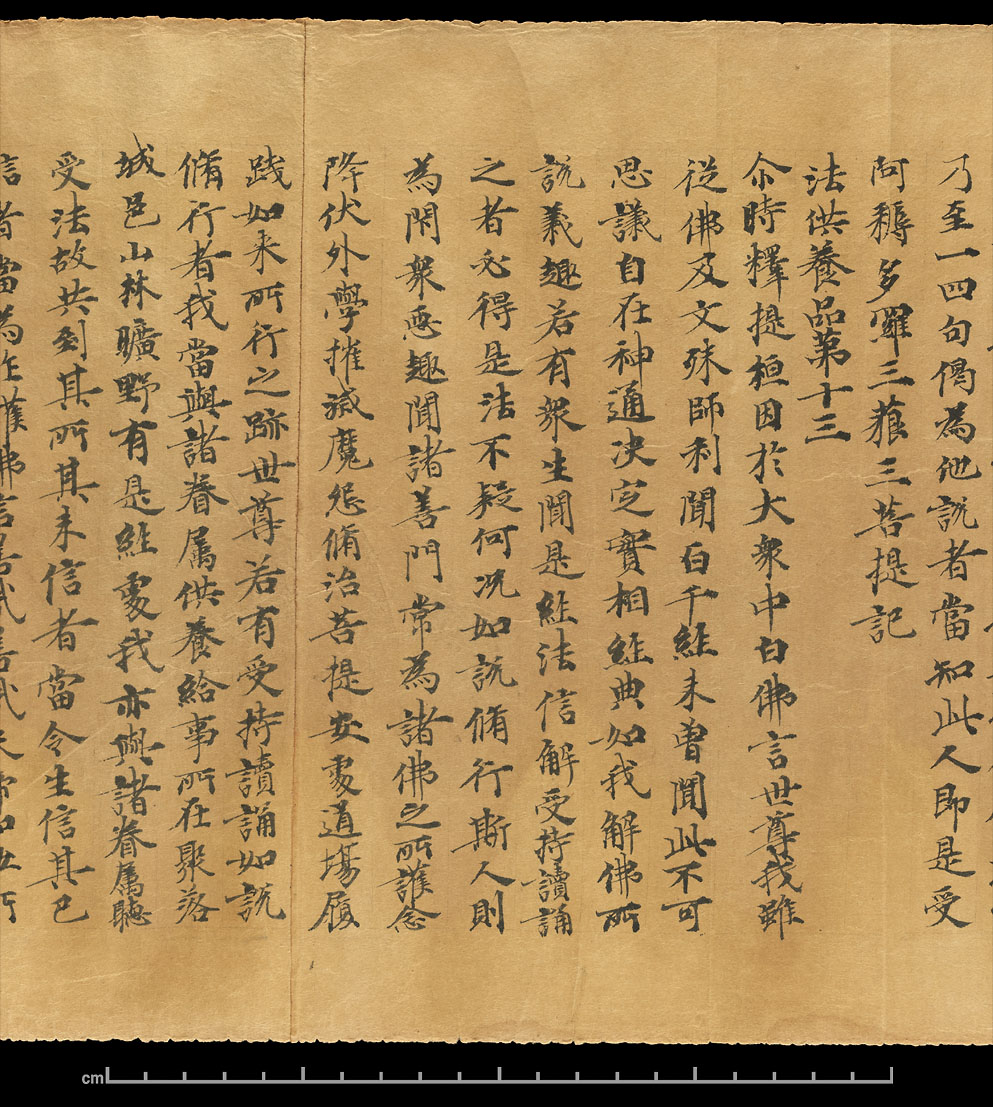 乃至一四句偈為他說者當知此人即是受
阿耨多羅三藐三菩提記
法供養品第十三
尒時釋提桓因於大衆中白佛言世尊我雖
從佛及文殊師利聞百千經未曾聞此不可
思議自在神通决定實相經典如我解佛所
說義趣若有衆生聞是經法信解受持讀誦
之者必得是法不疑何况如說脩行斯人則
為閇衆惡趣開諸善門常為諸佛之所護念
降伏外學摧滅魔怨脩治菩提安處道場履
踐如来所行之跡世尊若有受持讀誦如說
脩行者我當與諸眷属供養給事所在聚落
城邑山林曠野有是經處我亦與諸眷属聽
受法故共到其所其未信者當令生信其已
信者當為作護佛言善哉善哉天帝如汝所